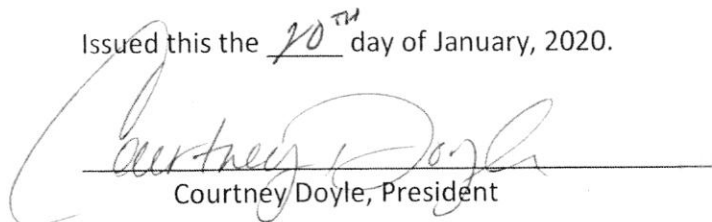 Issued this the 20TH day of January, 2020.
Courtney Doyle
Courtney Doyle, President